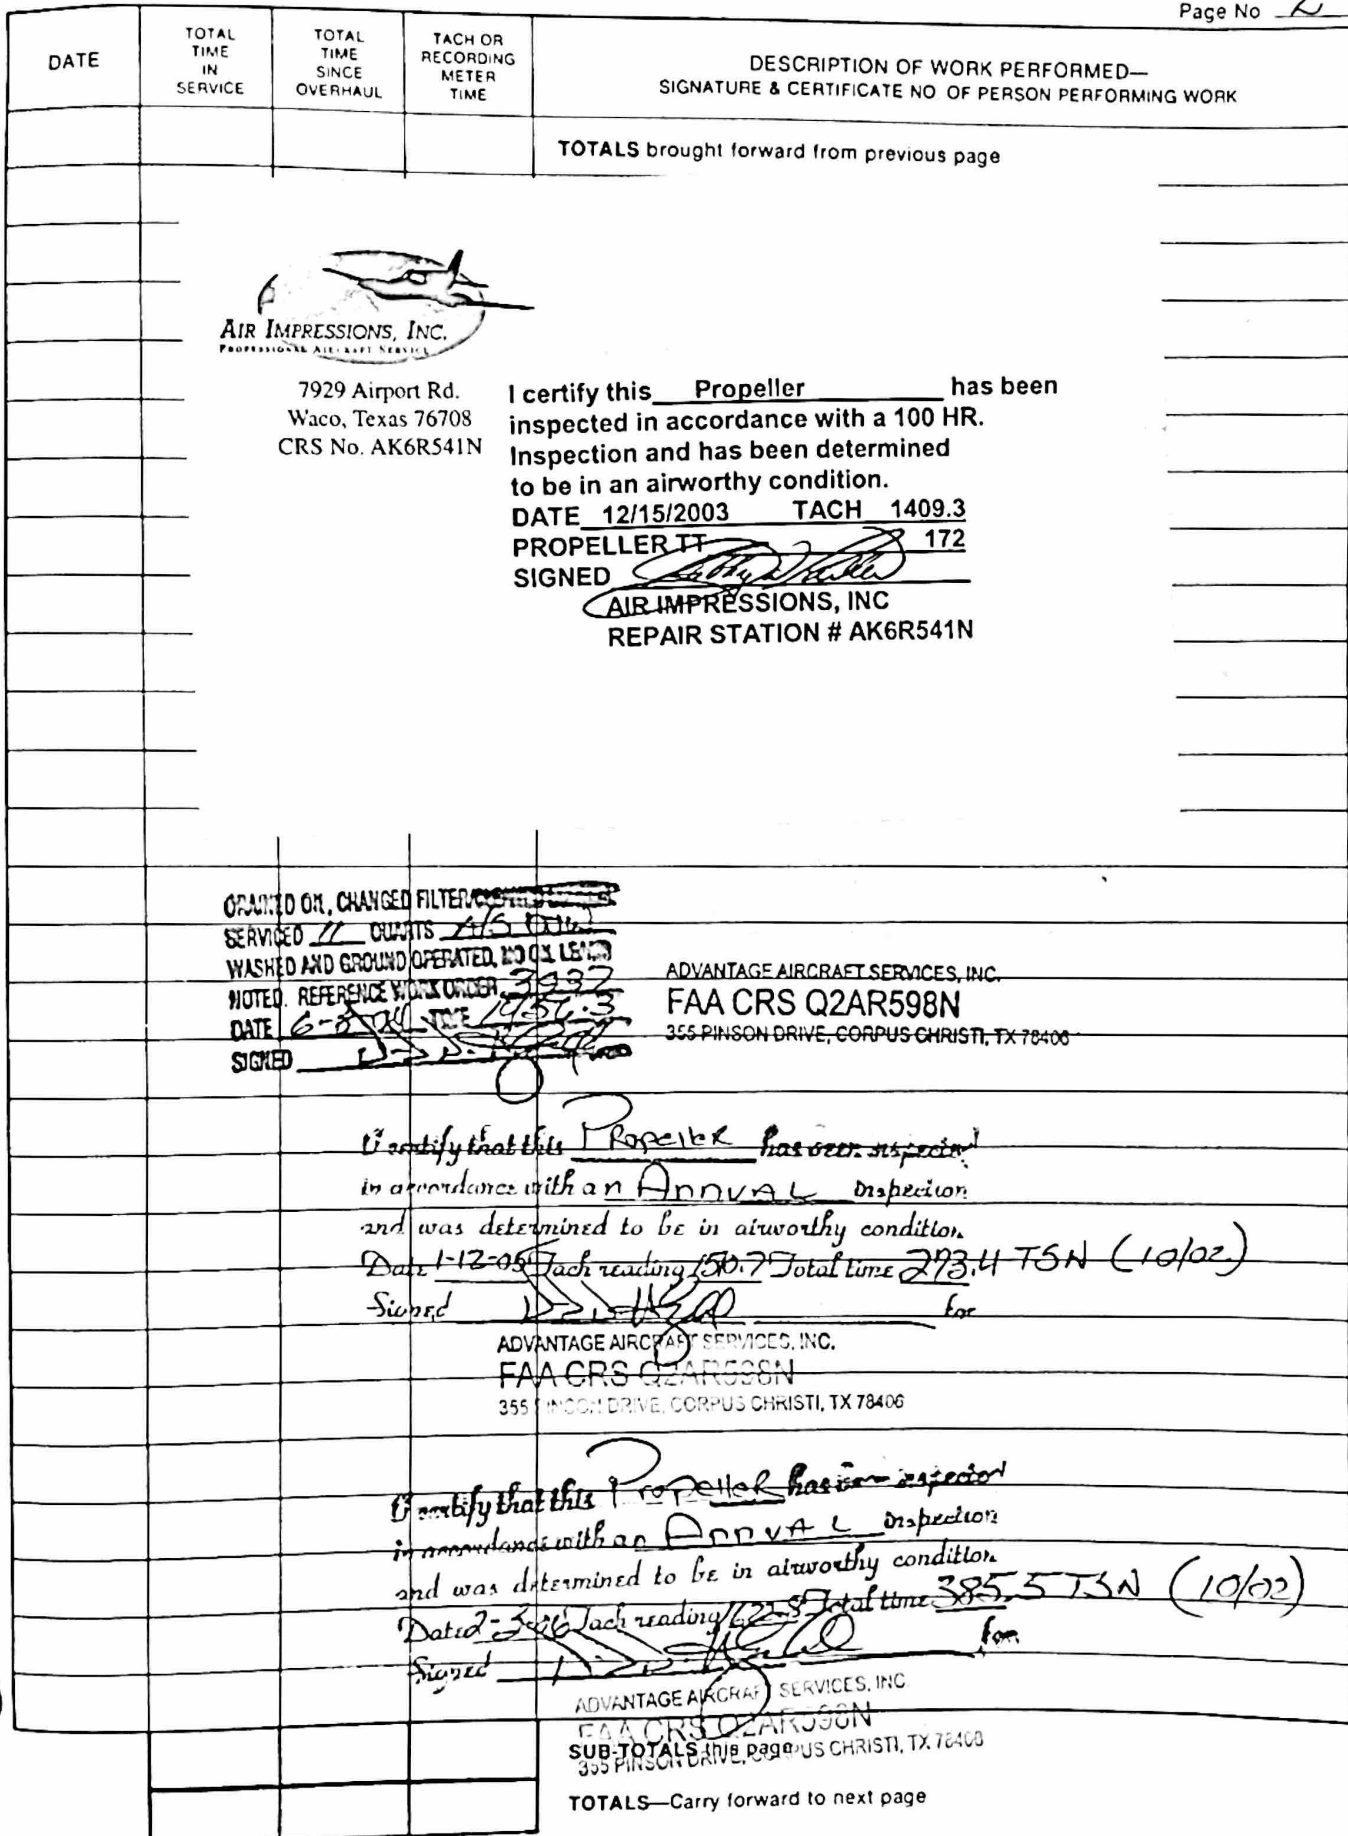 Page No 2
DATE
TOTAL TIME IN SERVICE
TOTAL TIME SINCE OVERHAUL
TACH OR RECORDING METER TIME
DESCRIPTION OF WORK PERFORMED—
SIGNATURE & CERTIFICATE NO OF PERSON PERFORMING WORK
TOTALS brought forward from previous page
AIR IMPRESSIONS, INC.
PROFESSIONAL AIRCRAFT SERVICE
7929 Airport Rd.
Waco, Texas 76708
CRS No. AK6R541N
I certify this Propeller has been
inspected in accordance with a 100 HR.
Inspection and has been determined
to be in an airworthy condition.
DATE 12/15/2003 TACH 1409.3
PROPELLER TT 172
SIGNED
AIR IMPRESSIONS, INC
REPAIR STATION # AK6R541N
DRAINED OIL, CHANGED FILTER
SERVICED 11 QUARTS
WASHED AND GROUND OPERATED, NO OIL LEAKS
NOTED. REFERENCE WORK ORDER 3932
DATE TIME
SIGNED
ADVANTAGE AIRCRAFT SERVICES, INC.
FAA CRS Q2AR598N
355 PINSON DRIVE, CORPUS CHRISTI, TX 78406
I certify that this Propeller has been inspected
in accordance with an Annual inspection
and was determined to be in airworthy condition.
Date 1-12-05 Tach reading 1510.7 Total time 273.4 TSN (10/02)
Signed for
ADVANTAGE AIRCRAFT SERVICES, INC.
FAA CRS Q2AR598N
355 PINSON DRIVE, CORPUS CHRISTI, TX 78406
I certify that this Propeller has been inspected
in accordance with an Annual inspection
and was determined to be in airworthy condition.
Date 2-3-06 Tach reading 1622.8 Total time 385.5 TSN (10/02)
Signed for
ADVANTAGE AIRCRAFT SERVICES, INC
FAA CRS Q2AR598N
SUB-TOTALS this page
355 PINSON DRIVE, CORPUS CHRISTI, TX 78406
TOTALS—Carry forward to next page